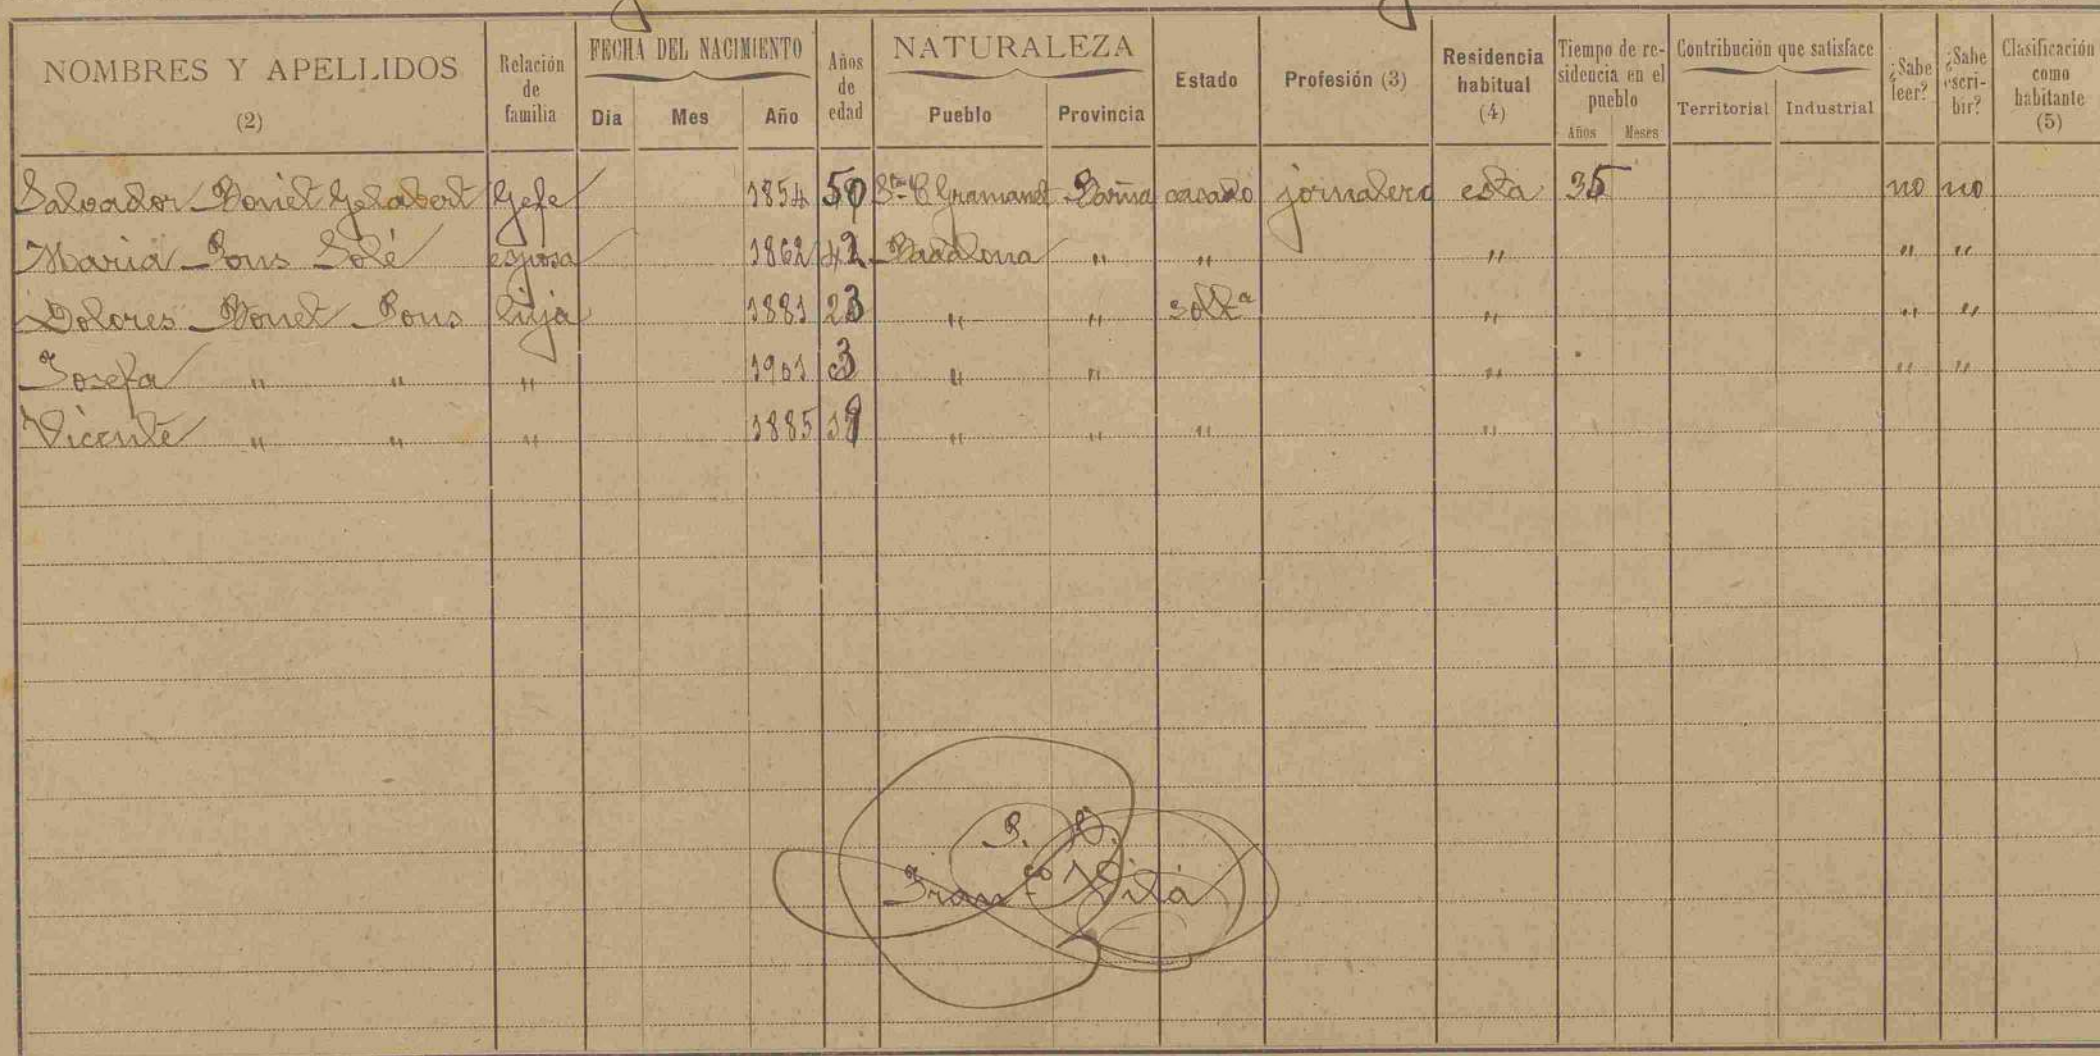 NOMBRES Y APELLIDOS (2) Relación de familia FECHA DEL NACIMIENTO Dia Mes Año Años de edad NATURALEZA Pueblo Provincia Estado Profesión (3) Residencia habitual (4) Tiempo de residencia en el pueblo Años Meses Contribución que satisface Territorial Industrial ¿Sabe leer? ¿Sabe escribir? Clasificación como habitante (5)
Salvador Bonet Gelabert Gefe 1854 50 Sta C Gramanet Barña casado jornalero esta 35 no no
Maria Pons Solé esposa 1862 42 Badalona " " " " "
Dolores Bonet Pons hija 1881 23 " " solta " " "
Josefa " " " 1901 3 " " " " "
Vicente " " " 1885 19 " " " "
P. O.
Franco Vilá